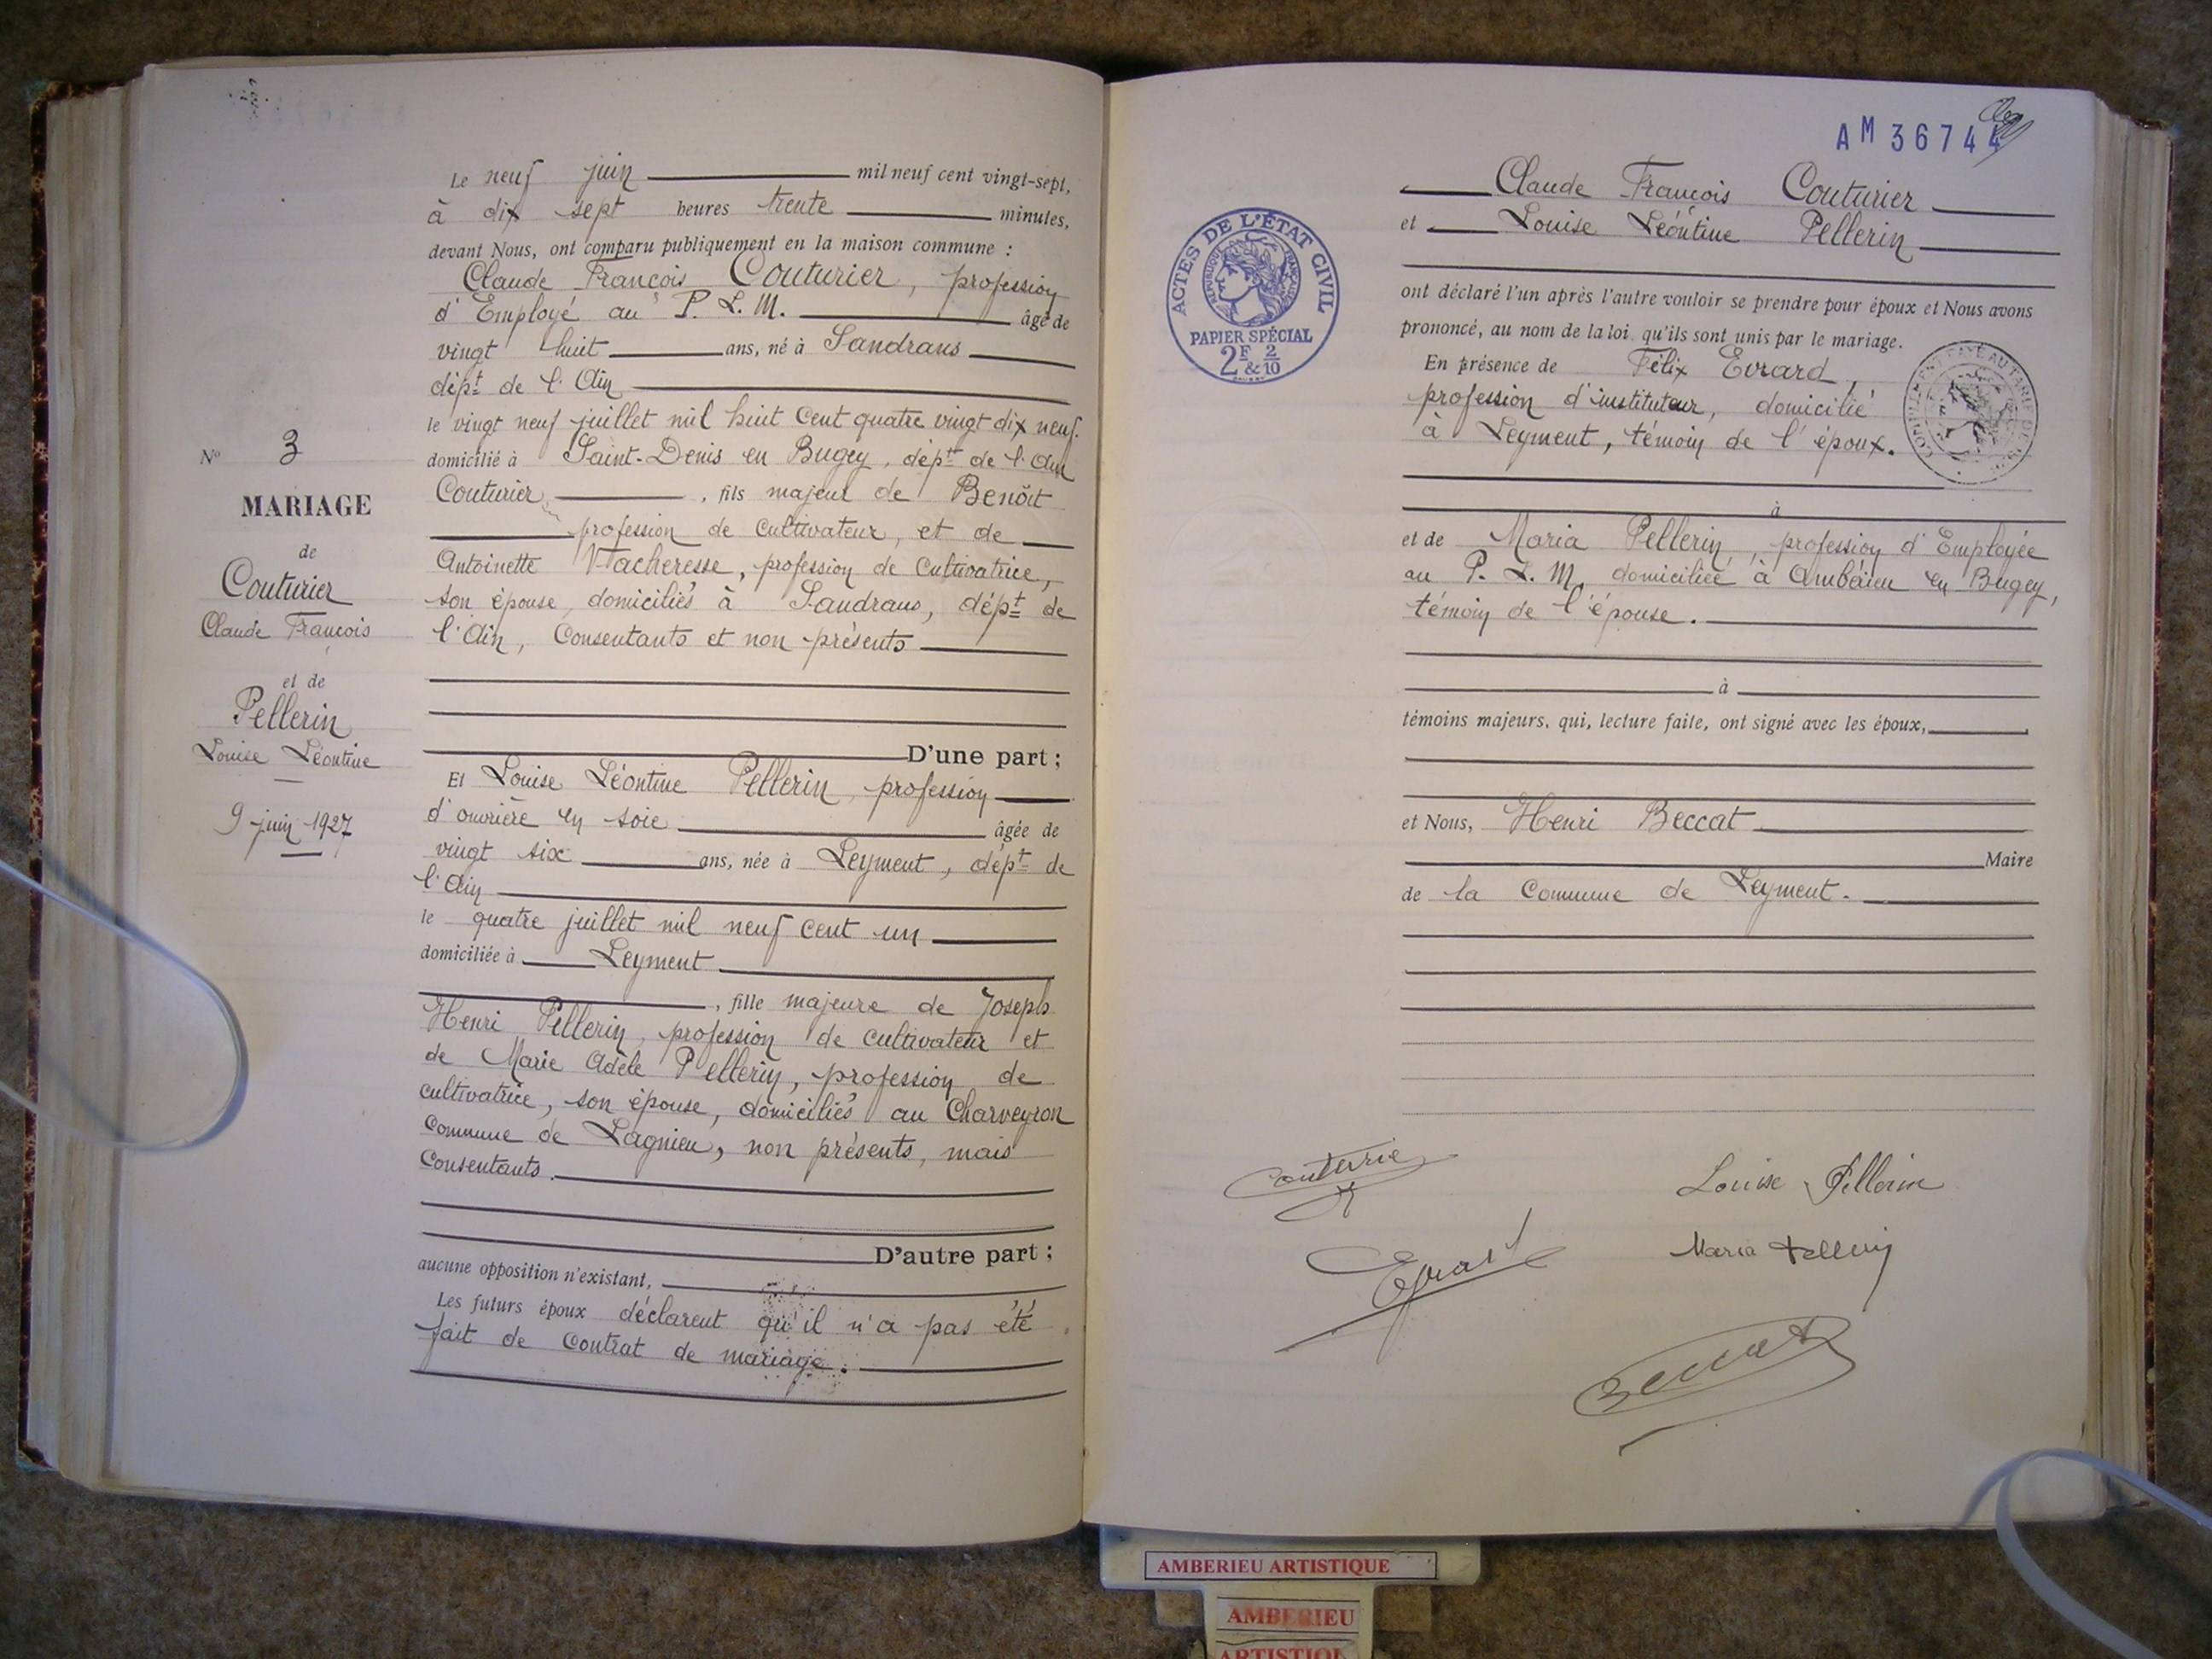 N° 3
MARIAGE
de
Couturier
Claude François
et de
Pellerin
Louise Léontine
9 juin 1927
Le neuf juin mil neuf cent vingt-sept,
à dix sept heures trente minutes,
devant Nous, ont comparu publiquement en la maison commune :
Claude François Couturier, profession
d'Employé au P. L. M. âgé de
vingt huit ans, né à Sandrans
dépt de l'Ain
le vingt neuf juillet mil huit cent quatre vingt dix neuf.
domicilié à Saint-Denis en Bugey, dépt de l'Ain
Couturier, fils majeur de Benoît
profession de cultivateur, et de
Antoinette Vacheresse, profession de cultivatrice,
son épouse, domiciliés à Sandrans, dépt de
l'Ain, consentants et non présents
D'une part ;
Et Louise Léontine Pellerin, profession
d'ouvrière en soie âgée de
vingt six ans, née à Leyment, dépt de
l'Ain
le quatre juillet mil neuf cent un
domiciliée à Leyment
, fille majeure de Joseph
Henri Pellerin, profession de cultivateur et
de Marie Adèle Pellerin, profession de
cultivatrice, son épouse, domiciliés au Charveyron
commune de Lagnieu, non présents, mais
consentants.
D'autre part ;
aucune opposition n'existant,
Les futurs époux déclarent qu'il n'a pas été
fait de contrat de mariage.
AM 36744
Claude François Couturier
et Louise Léontine Pellerin
ACTES DE L'ÉTAT CIVIL
RÉPUBLIQUE FRANÇAISE
PAPIER SPÉCIAL
2F & 2/10
ont déclaré l'un après l'autre vouloir se prendre pour époux et Nous avons
prononcé, au nom de la loi, qu'ils sont unis par le mariage.
En présence de Félix Evrard,
profession d'instituteur, domicilié
à Leyment, témoin de l'époux.
COMPLÉMENT PAYÉ AU TARIF DE
à
et de Maria Pellerin, profession d'Employée
au P. L. M. domiciliée à Ambérieu en Bugey,
témoin de l'épouse.
à
témoins majeurs, qui, lecture faite, ont signé avec les époux,
et Nous, Henri Beccat
Maire
de la Commune de Leyment.
Couturier
Louise Pellerin
Evrard
Maria Pellerin
Beccat
AMBERIEU ARTISTIQUE
AMBERIEU
ARTISTIQUE